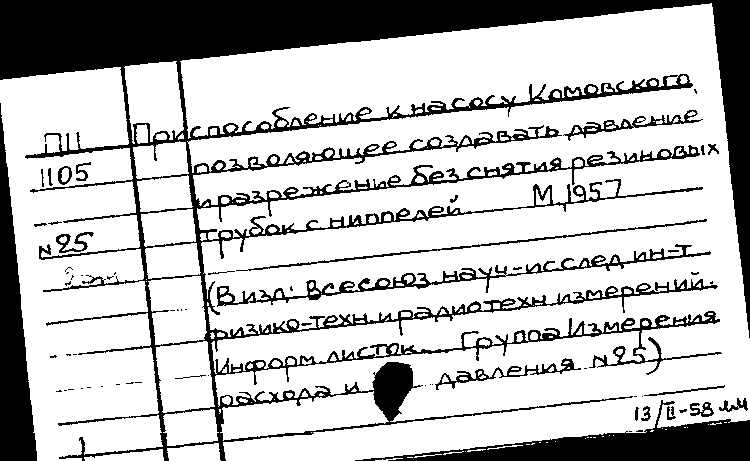 ПII Приспособление к насосу Комовского,
1105 позволяющее создавать давление
и разрежение без снятия резиновых
N25 трубок с ниппелей. М, 1957
2 экз
(В изд: Всесоюз. науч-исслед ин-т
физико-техн. и радиотехн измерений.
Информ листок... Группа Измерения
расхода и давления N25)
13/II-58 мм